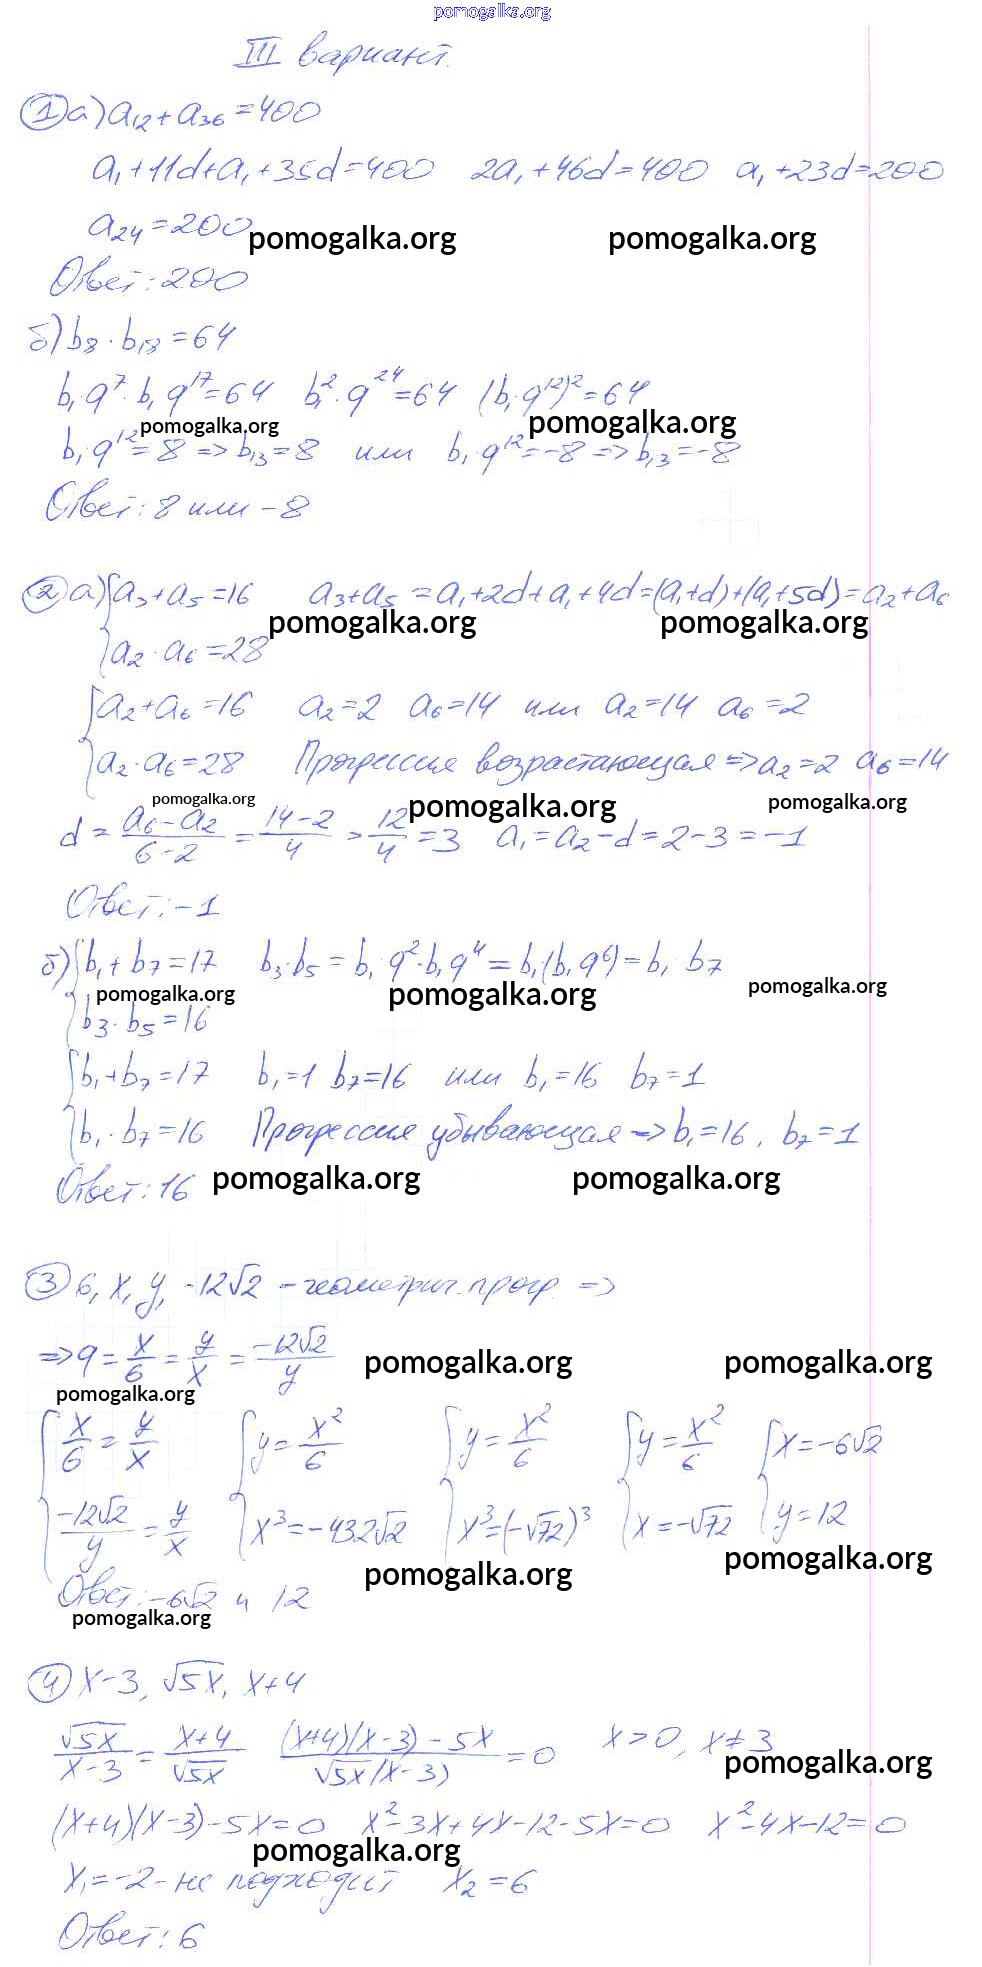 pomogalka.org
III вариант.
① а) a₁₂ + a₃₆ = 400
a₁ + 11d + a₁ + 35d = 400 2a₁ + 46d = 400 a₁ + 23d = 200
a₂₄ = 200
pomogalka.org pomogalka.org
Ответ: 200
б) b₈ · b₁₈ = 64
b₁q⁷ · b₁q¹⁷ = 64 b₁² · q²⁴ = 64 (b₁q¹²)² = 64
pomogalka.org pomogalka.org
b₁q¹² = 8 => b₁₃ = 8 или b₁q¹² = -8 => b₁₃ = -8
Ответ: 8 или -8
② а) { a₃ + a₅ = 16 a₃ + a₅ = a₁ + 2d + a₁ + 4d = (a₁ + d) + (a₁ + 5d) = a₂ + a₆
pomogalka.org pomogalka.org
a₂ · a₆ = 28
{ a₂ + a₆ = 16 a₂ = 2 a₆ = 14 или a₂ = 14 a₆ = 2
a₂ · a₆ = 28 Прогрессия возрастающая => a₂ = 2 a₆ = 14
pomogalka.org pomogalka.org pomogalka.org
d = (a₆ - a₂)/(6 - 2) = (14 - 2)/4 = 12/4 = 3 a₁ = a₂ - d = 2 - 3 = -1
Ответ: -1
б) { b₁ + b₇ = 17 b₃ · b₅ = b₁ · q² · b₁q⁴ = b₁ · (b₁q⁶) = b₁ · b₇
pomogalka.org pomogalka.org pomogalka.org
b₃ · b₅ = 16
{ b₁ + b₇ = 17 b₁ = 1 b₇ = 16 или b₁ = 16 b₇ = 1
b₁ · b₇ = 16 Прогрессия убывающая => b₁ = 16, b₇ = 1
Ответ: 16
pomogalka.org pomogalka.org
③ 6, x, y, -12√2 - геометрич. прогр. =>
=> q = x/6 = y/x = -12√2/y
pomogalka.org pomogalka.org
pomogalka.org
{ x/6 = y/x { y = x²/6 { y = x²/6 { y = x²/6 { x = -6√2
-12√2/y = y/x x³ = -432√2 x³ = (-√72)³ x = -√72 y = 12
pomogalka.org pomogalka.org
Ответ: -6√2 и 12
pomogalka.org
④ x - 3, √5x, x + 4
√5x/(x - 3) = (x + 4)/√5x ((x + 4)(x - 3) - 5x)/(√5x(x - 3)) = 0 x > 0, x ≠ 3
pomogalka.org
(x + 4)(x - 3) - 5x = 0 x² - 3x + 4x - 12 - 5x = 0 x² - 4x - 12 = 0
pomogalka.org
x₁ = -2 - не подходит x₂ = 6
Ответ: 6